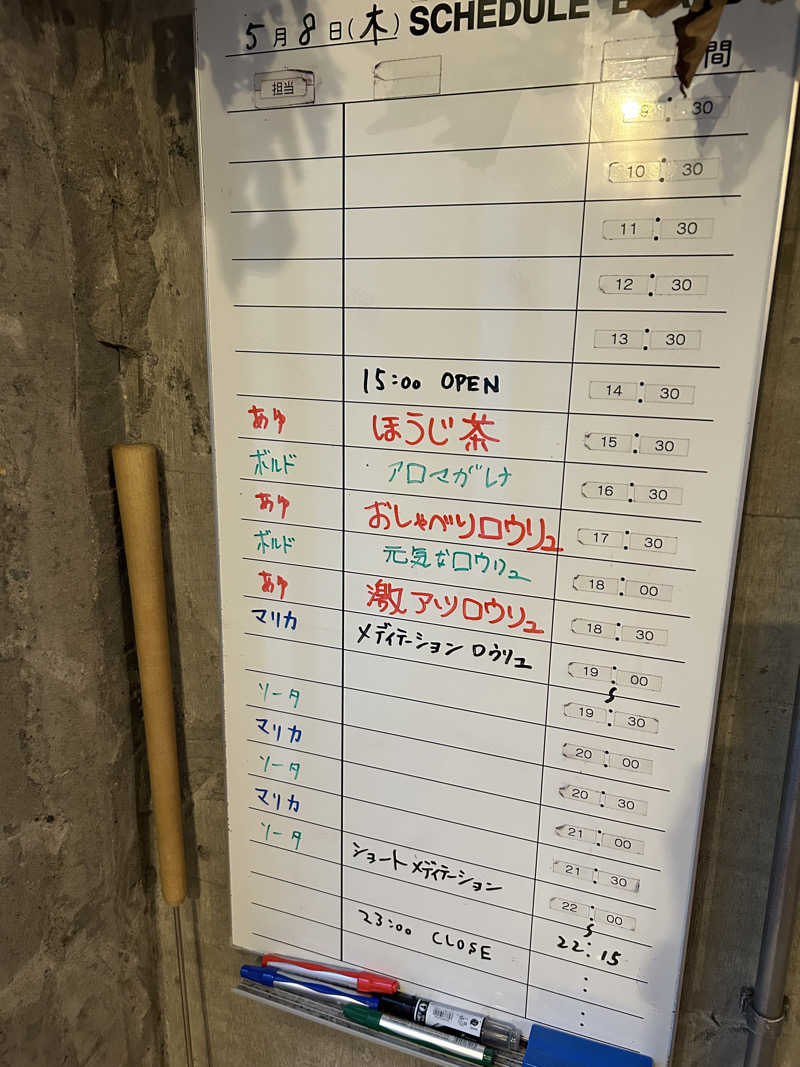 5月8日(木) SCHEDULE
担当 間
9:30
10:30
11:30
12:30
13:30
15:00 OPEN 14:30
あゆ ほうじ茶 15:30
ボルド アロマがレナ 16:30
あゆ おしゃべりロウリュ 17:30
ボルド 元気なロウリュ 18:00
あゆ 激アツロウリュ 18:30
マリカ メディテーション ロウリュ 19:00
〜
19:30
ソータ 20:00
マリカ 20:30
ソータ 21:00
マリカ 21:30
ソータ ショートメディテーション 22:00
〜
22:15
23:00 CLOSE